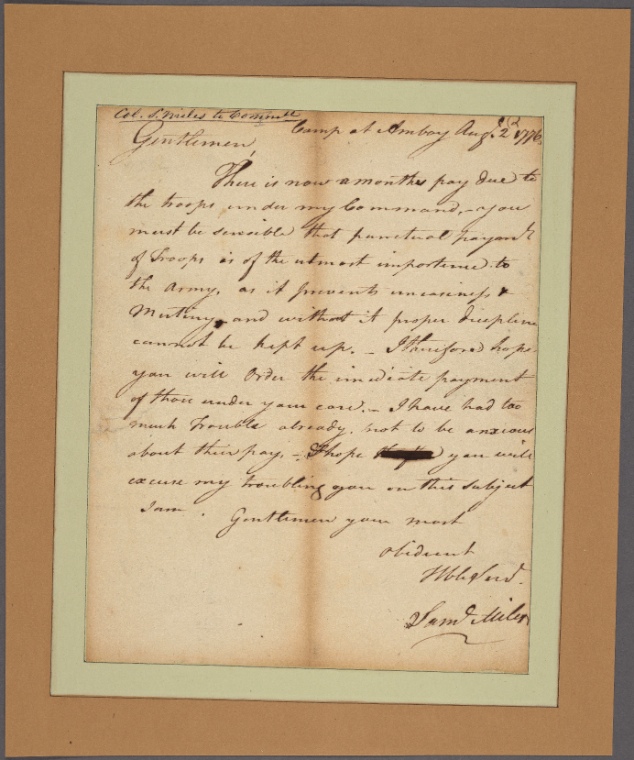 Col. S. Miles to Committ
Camp at Amboy Aug. 2d 1776
Gentlemen,
There is now a months pay due to
the troops under my Command, - you
must be sensible that punctual payamt
of Troops is of the utmost importence to
the Army, as it prevents uneasiness &
Mutiny, and without it proper discipline
cannot be kept up. - I therefore hope
you will Order the imediate payment
of those under your care. - I have had too
much Trouble already, not to be anxious
about their pay. - I hope you will
excuse my troubling you on this subject
I am Gentlemen your most
obedient
Hble Serv.
Saml Miles